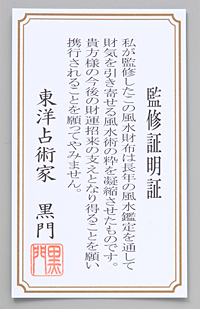 監修証明証
私が監修したこの風水財布は長年の風水鑑定を通して
財気を引き寄せる風水術の粋を凝縮させたものです。
貴方様の今後の財運招来の支えとなり得ることを願い
携行されることを願ってやみません。
東洋占術家 黒門
黒門